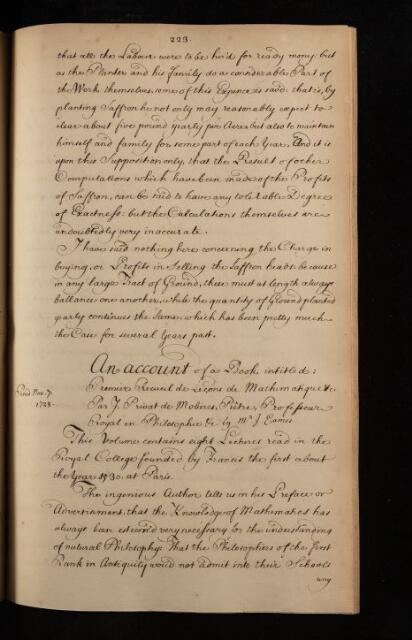 223.
that all the Labour were to be hired for ready mony. but
as the Planter and his family do a considerable Part of
the Work themselves, some of this Expence is saved: that is, by
planting Saffron he not only may reasonably expect to
clear about five pound yearly per Acre but also to maintain
himself and family for some part of each Year. And it is
upon this Supposition only, that the Result of other
Computations which have been made of the Profits
of Saffron, can be said to have any tolerable Degree
of Exactness: but the Calculations themselves are
undoubtedly very inaccurate.
I have said nothing here concerning the Charge in
buying, or Profits in Selling the Saffron heads: because
in any large Tract of Ground, these must at length always
ballance one another, while the quantity of Ground planted
yearly continues the same: which has been pretty much
the Case for several Years past.
An account of a Book intitled:
Premier Recueil de Leçons de Mathematique &c.
Read Nov. 7.
1728.
Par J. Privat de Molieres, Prêtre, Professeur
Royal en Philosophie &c. by Mr. J. Eames
This Volume contains eight Lectures read in the
Royal College founded by Francis the first about
the Year 1530. at Paris.
The ingenious Author tells us in his Preface or
Advertisement, that the Knowledge of Mathematicks has
always been esteem'd very necessary for the understanding
of natural Philosophy. That the Philosophers of the first
Rank in Antiquity would not admit into their Schools
any